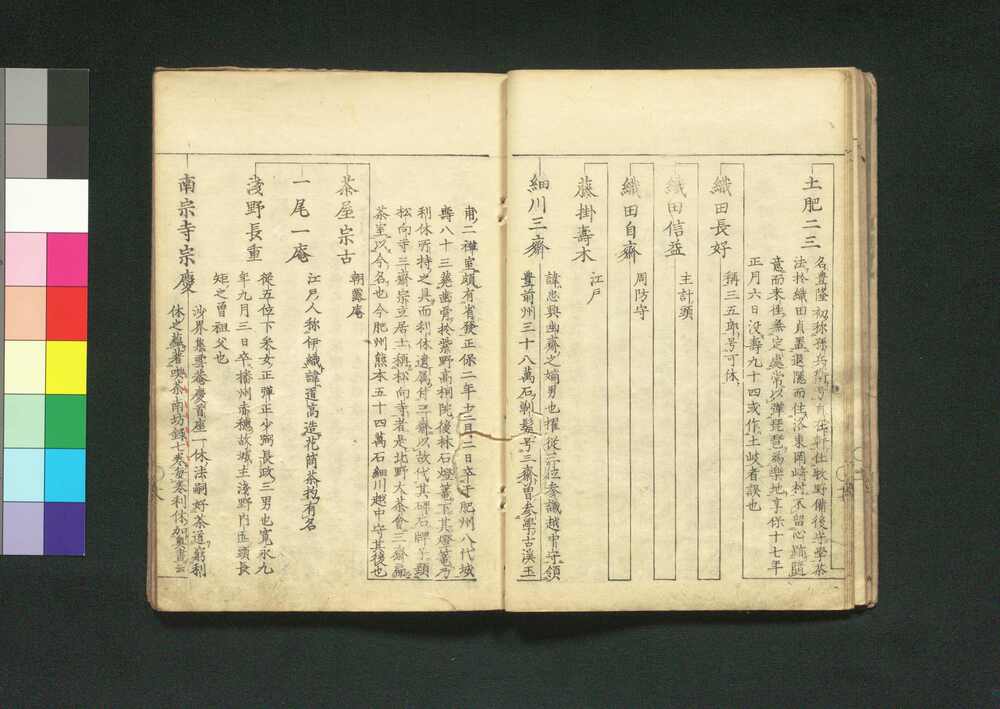 土肥二三
名豊隆初称孫兵衛号自在軒仕牧野備後半學茶
法於織田貞置退隱而住洛東岡崎村不留心號隨
意而來往無定處常以彈琵琶為樂地享保十七年
正月六日没壽九十四或作土岐者誤也
織田長好
称三五郎号可休
織田信益
主計頭
織田自齋
周防守
藤掛壽木
江戸
細川三齋
諱忠興幽齋之嫡男也擢從三位參議越中守領
豊前州三十八萬石剃髮号三齋曽參學古溪玉
甫二禅室頗有省發正保二年十二月二日卒于肥州八代城
壽八十三葬歯骨於紫野高桐院後林石燈篭下其燈篭乃
利休所持之具而利休遺属付三齋以故代其碑石牌子題
松向寺三齋宗立居士稱松向寺者是北野大茶會三齋
茶室以今名也今肥州熊本五十四萬石細川越中守其後也
茶屋宗古
朝露庵
一尾一庵
江戸人称伊織諱道高造花筒茶杓有名
淺野長重
從五位下釆女正彈正少弼長政三男也寛永九
年九月三日卒播州赤穗故城主淺野内匠頭長
矩之曽祖父也
南宗寺宗慶
沙界集雲菴慶首座一休法嗣好茶道窮利
休之蘊著喫茶南坊録七巻毎巻利休加奥書云